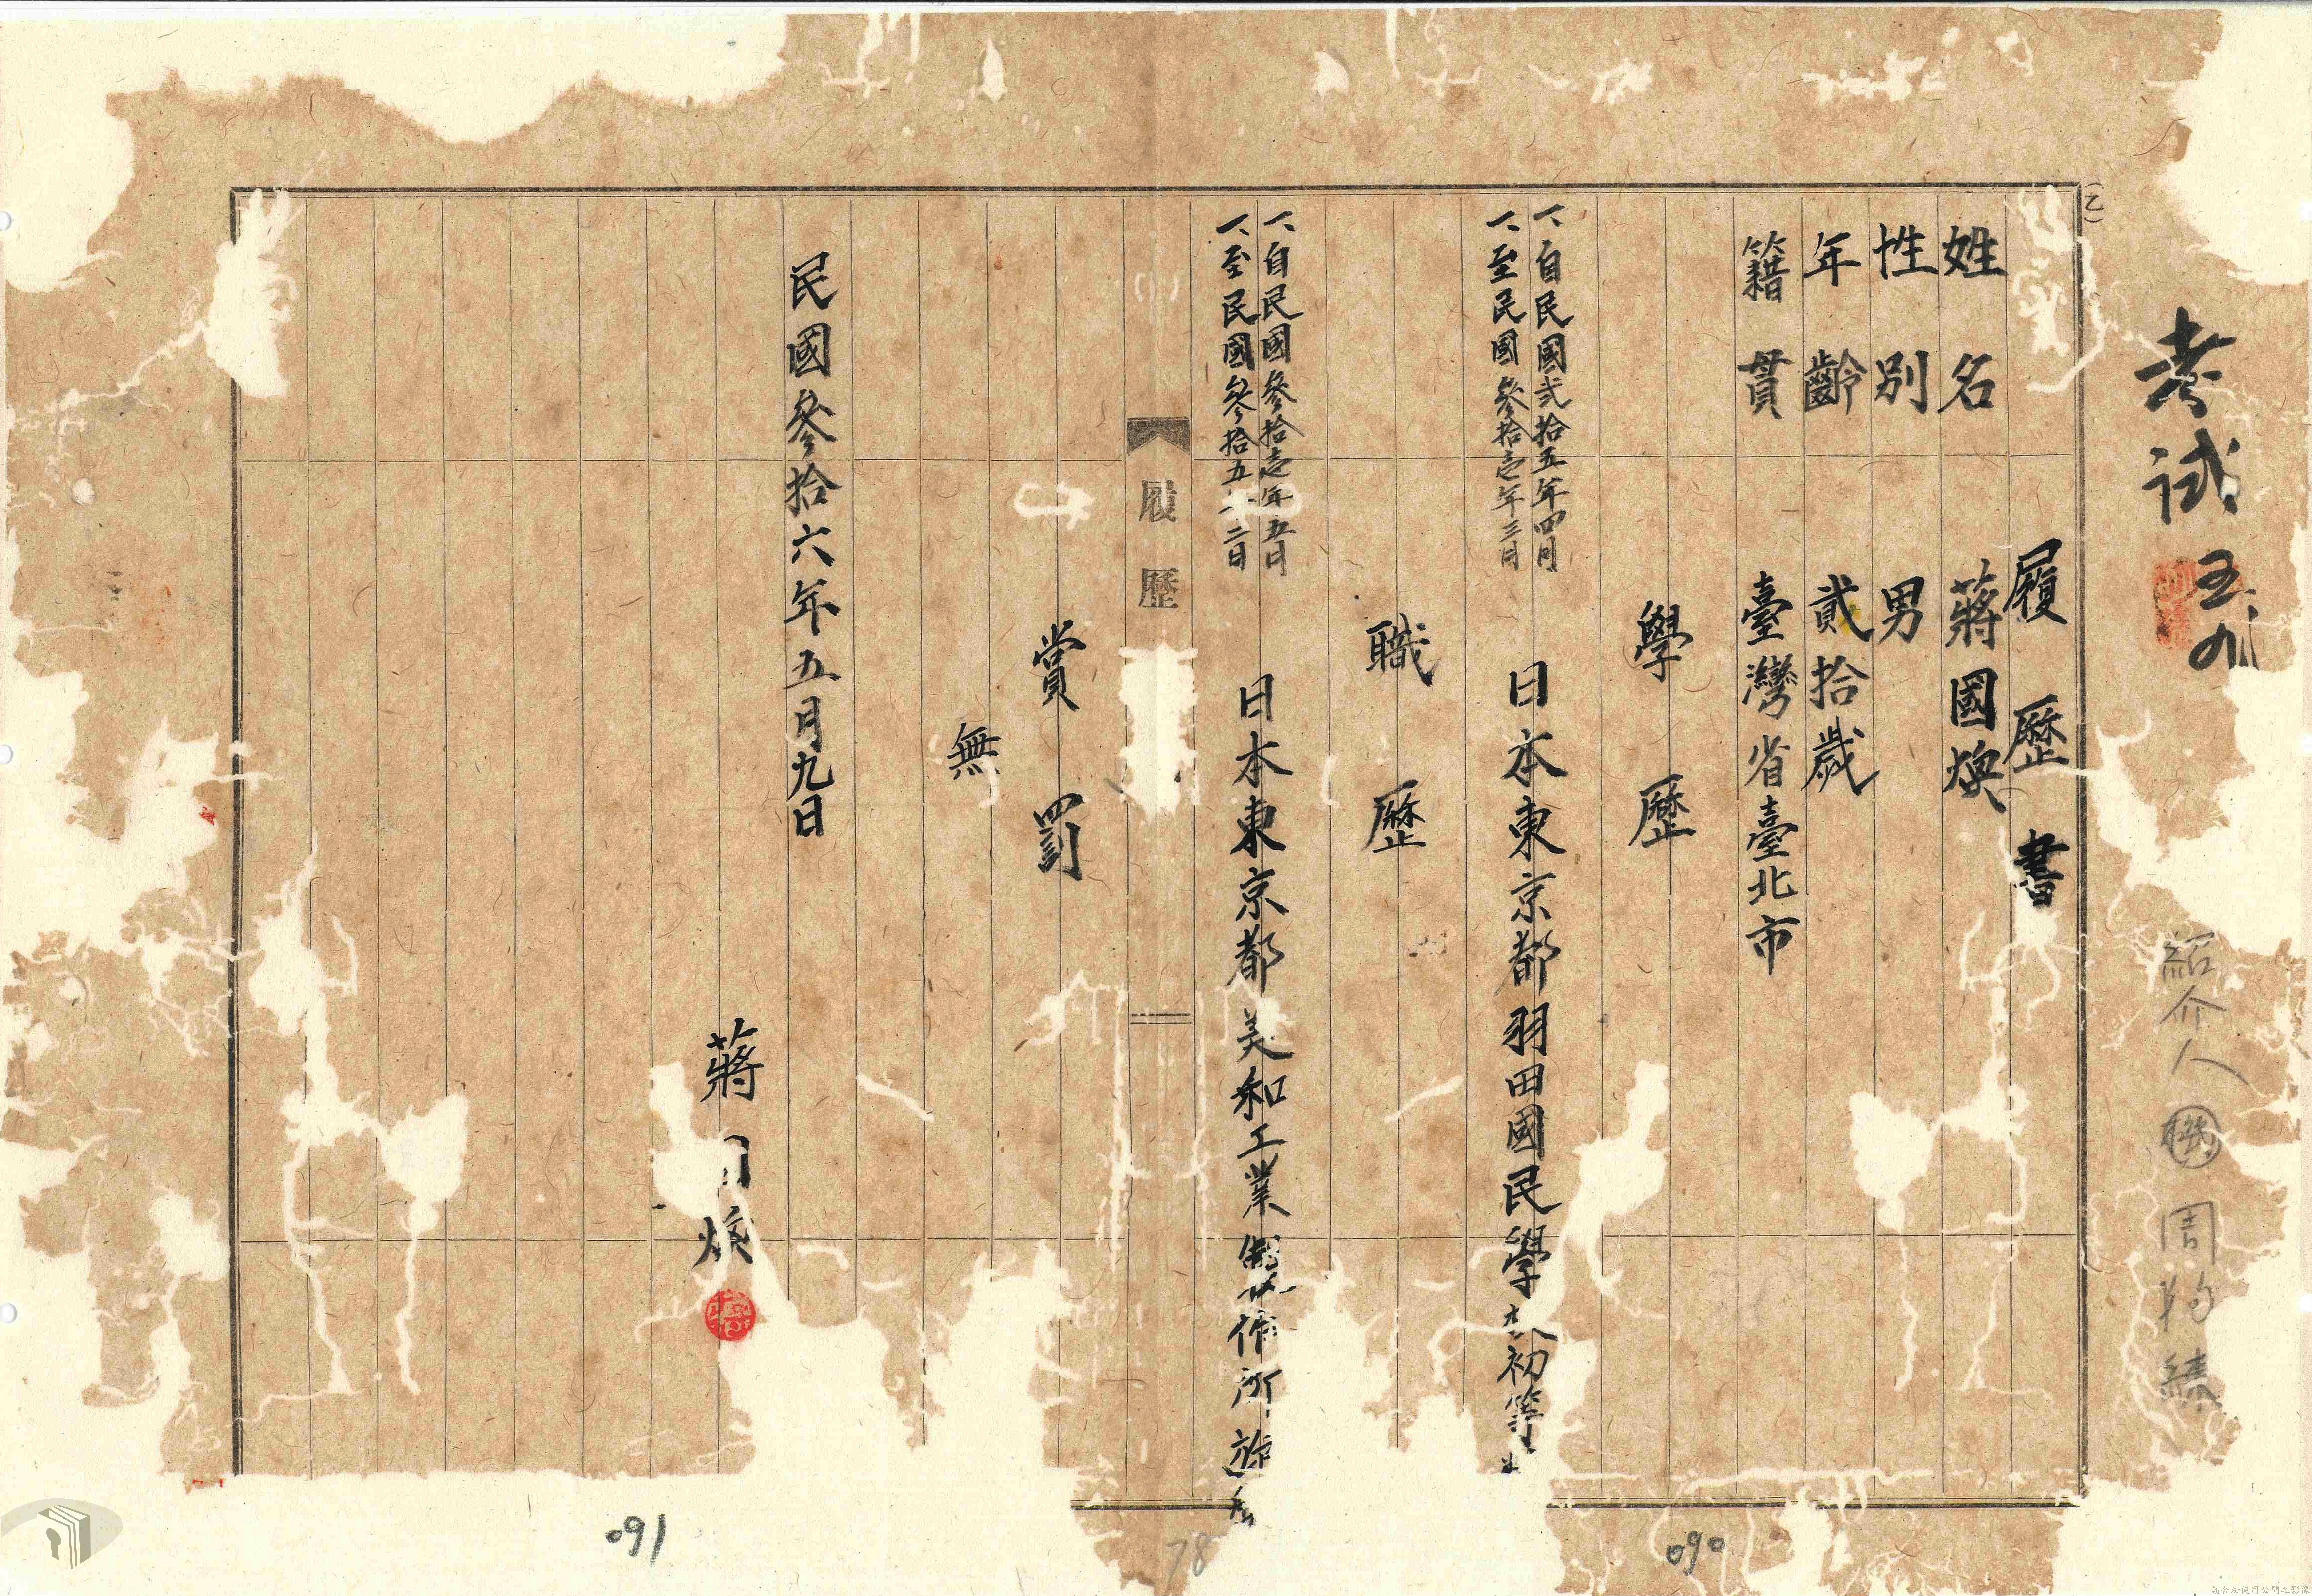 (乙)
考試
五九
紹介人 機 周
履歷書
姓名 蔣國煥
性別 男
年齡 貳拾歲
籍貫 臺灣省臺北市
學歷
一、自民國貳拾五年四月
一、至民國參拾壱年三月
日本東京都羽田國民學 初等
職歷
一、自民國參拾壱年五月
一、至民國參拾五 二月
日本東京都美和工業製作所
履歷
賞罰
無
民國參拾六年五月九日
蔣 煥
091
78
090
請合法使用公開之影像